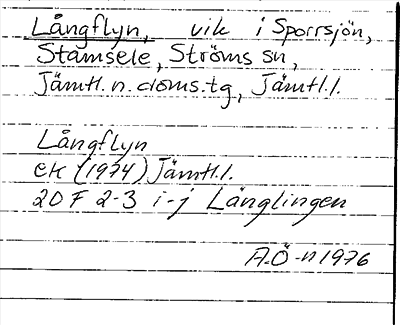 Långflyn, vik i Sporrsjön,
Stamsele, Ströms sn,
Jämtl. n. doms.tg, Jämtl.l.
Långflyn
ek (1974) Jämtl.l.
20 F 2-3 i-j Långlingen
A.Ö-n 1976